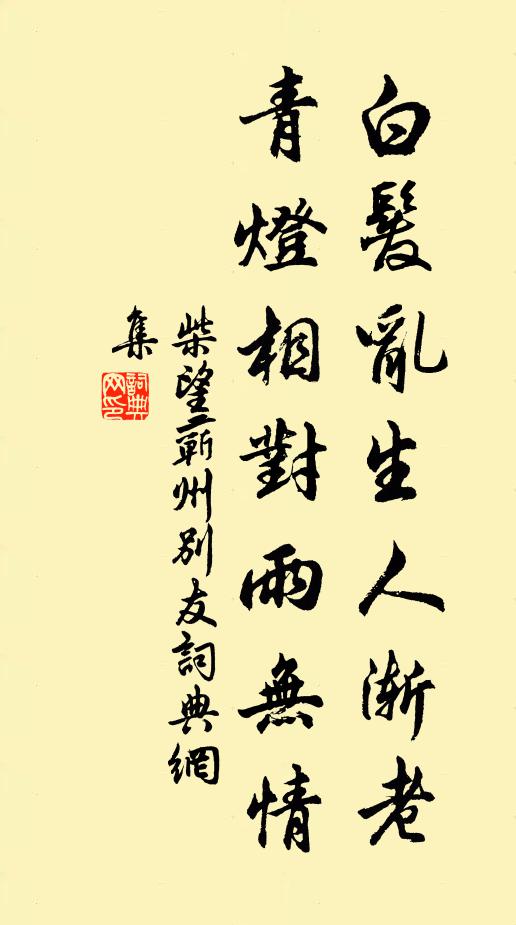 白髮亂生人渐老
青燈相對雨無情
柴望蘄州别友詞典網
集
詞典
网印